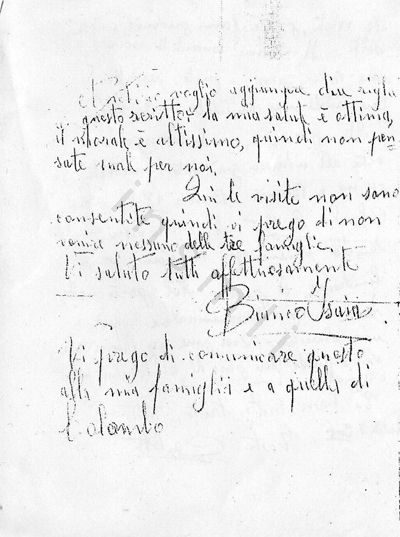 voglio aggiungere due righe
questo scritto, la mia salute è ottima,
il morale è altissimo, quindi non pen
sate male per noi.
Qui le visite non sono
consentite quindi vi prego di non
venire nessuno delle tre famiglie.
Vi saluto tutti affettuosamente
Bianco Isaia
Vi prego di comunicare questo
alla mia famiglia e a quella di
Colombo